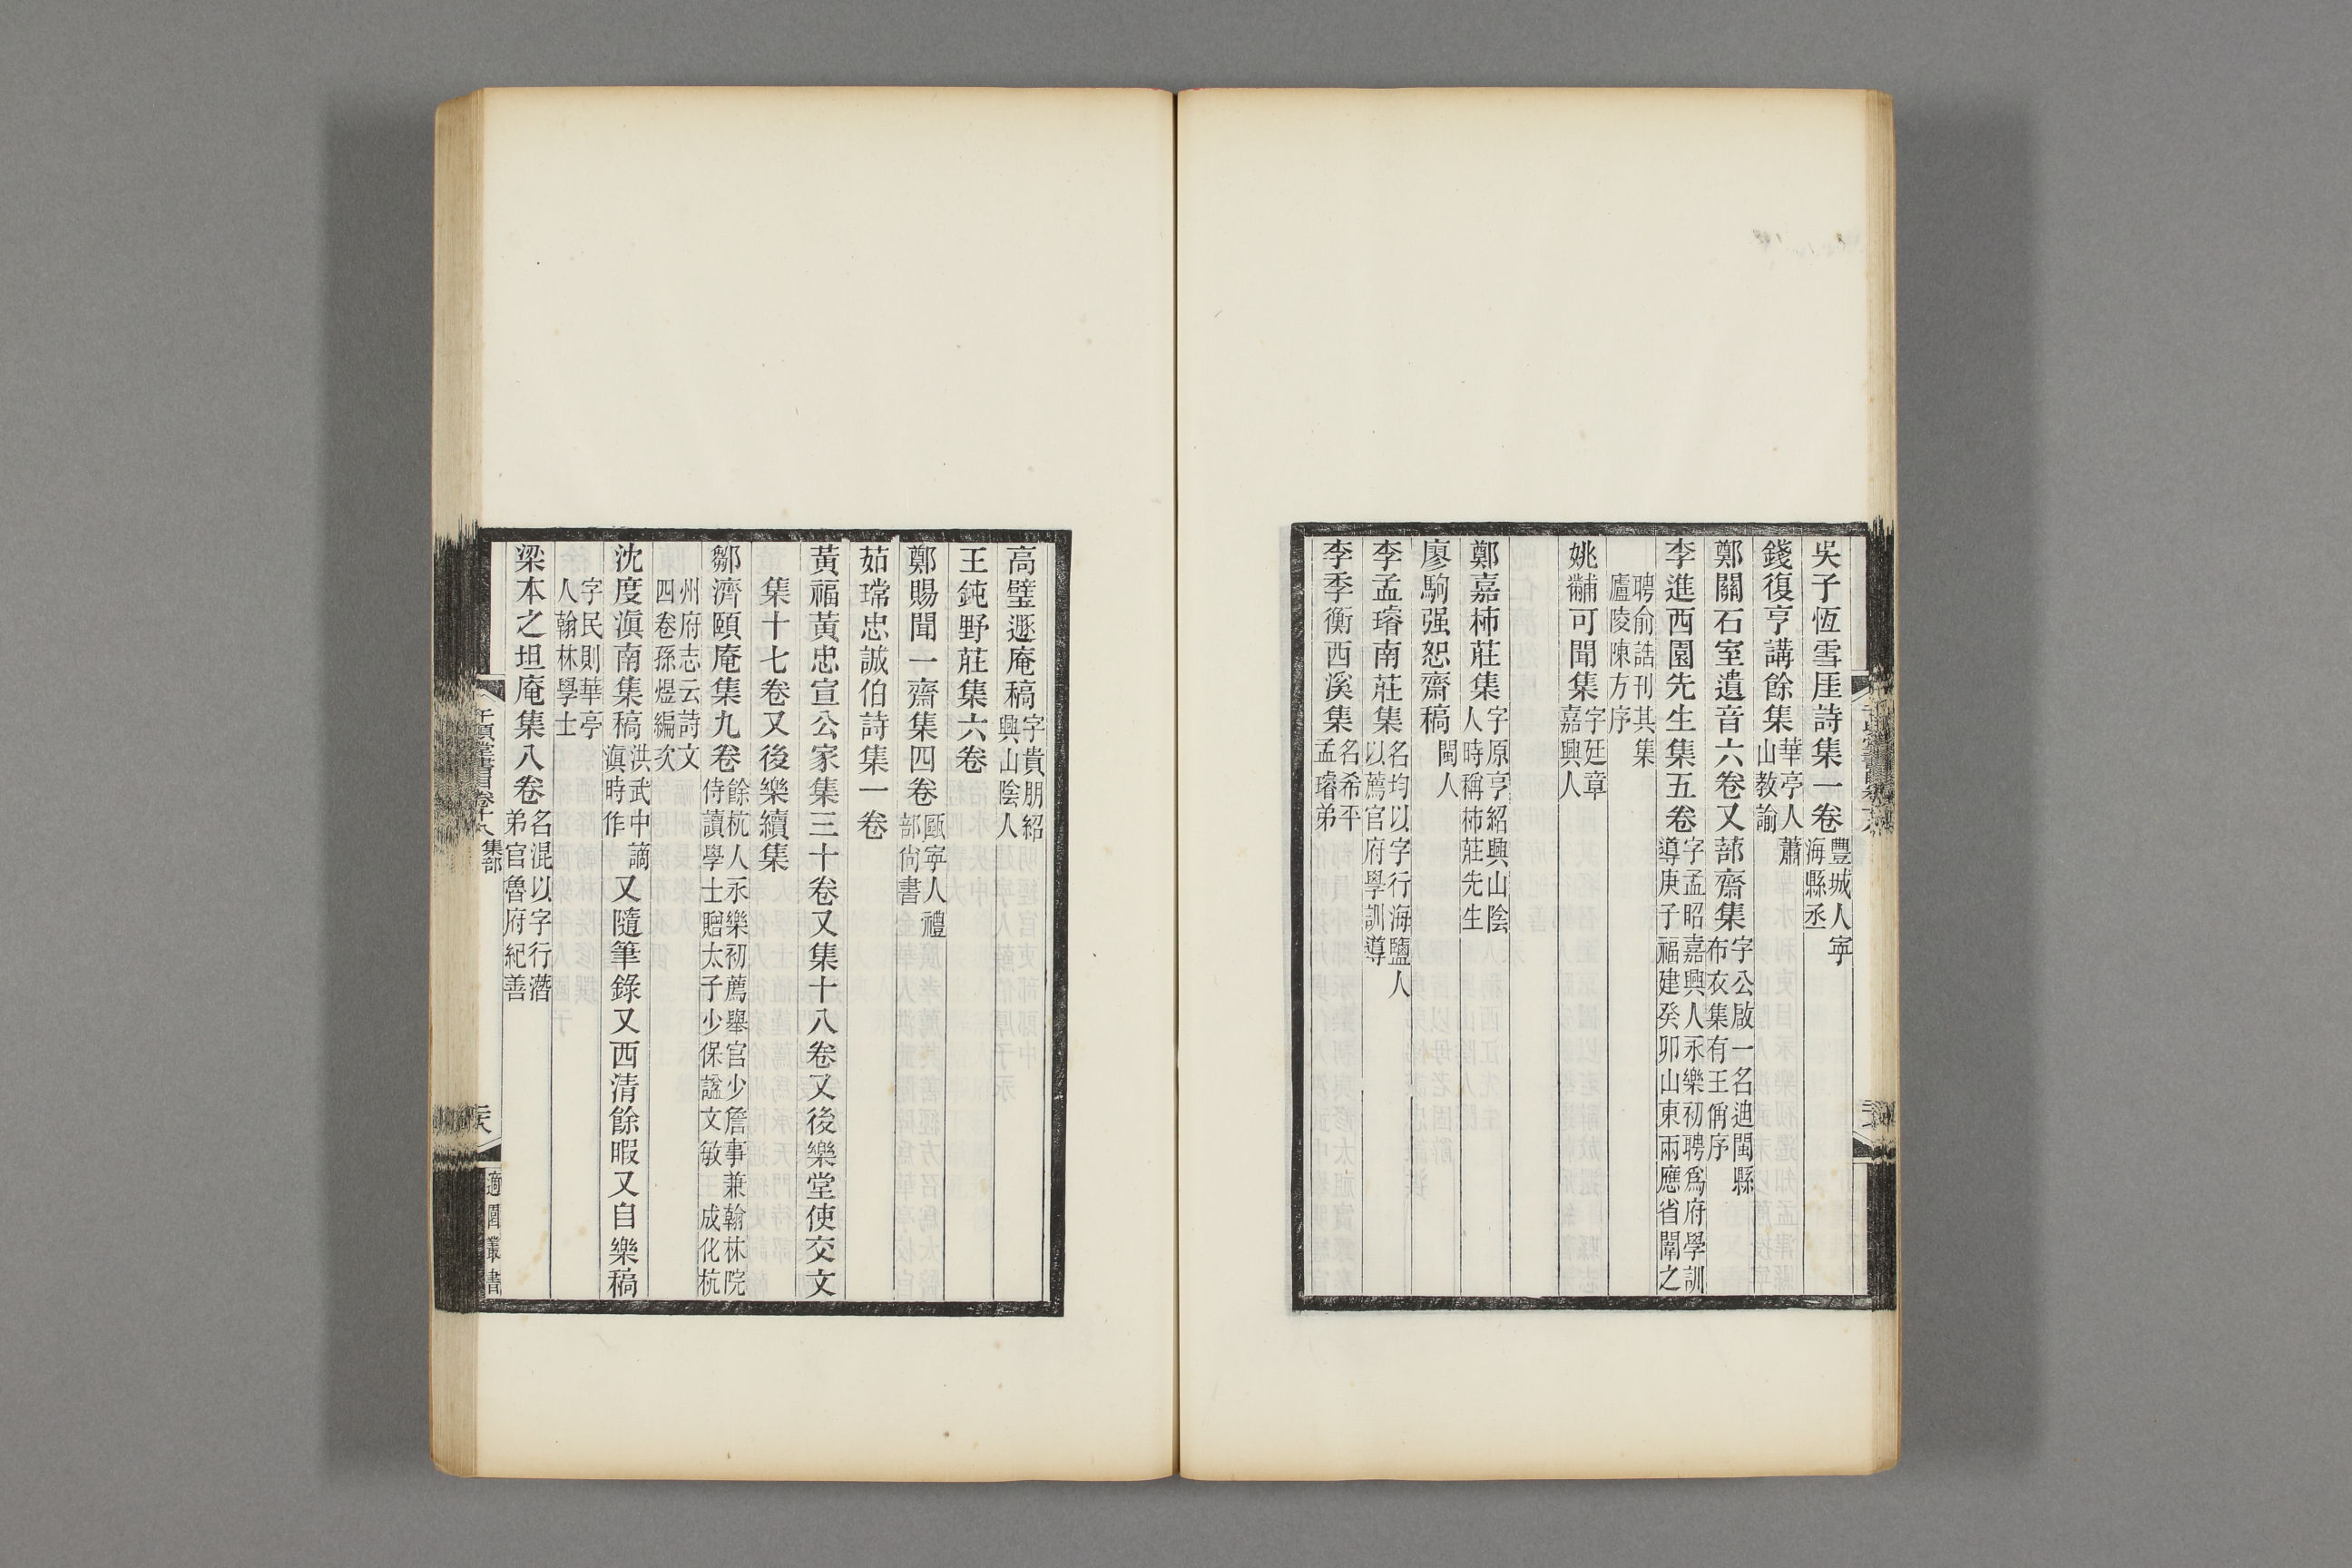 吳子恆雪厓詩集一卷豐城人寧海縣丞
錢復亨講餘集華亭人蕭山教諭
鄭關石室遺音六卷又蔀齋集字公啟一名迪閩縣布衣集有王偁序
李進西園先生集五卷字孟昭嘉興人永樂初聘爲府學訓導庚子福建癸卯山東兩應省闈之
聘俞誥刊其集廬陵陳方序
姚黼可聞集字廷章嘉興人
鄭嘉柿莊集字原亨紹興山陰人時稱柿莊先生
廖駒强恕齋稿閩人
李孟璿南莊集名均以字行海鹽人以薦官府學訓導
李季衡西溪集名希平孟璿弟
高璧遯庵稿字貴朋紹興山陰人
王鈍野莊集六卷
鄭賜聞一齋集四卷甌寧人禮部尙書
茹瑺忠誠伯詩集一卷
黃福黃忠宣公家集三十卷又集十八卷又後樂堂使交文
集十七卷又後樂續集
鄒濟頤庵集九卷餘杭人永樂初薦舉官少詹事兼翰林院侍讀學士贈太子少保諡文敏成化杭
州府志云詩文四卷孫煜編次
沈度滇南集稿洪武中謫滇時作又隨筆錄又西清餘暇又自樂稿
字民則華亭人翰林學士
梁本之坦庵集八卷名混以字行潛弟官魯府紀善
千頃堂書目卷十八集部
二十六
適園叢書